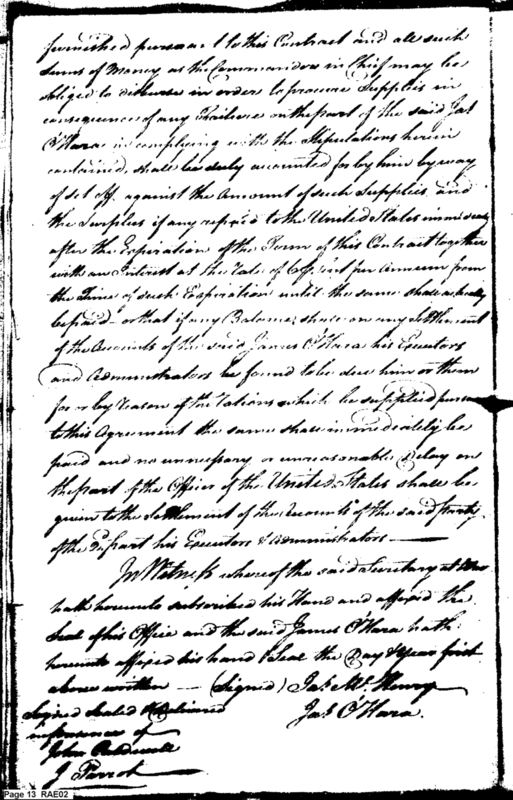 furnished pursuant to this Contract and all such
Sums of Money as the Commander in Chief may be
obliged to disburse in order to procure Supplies in
consequence of any Failure on the part of the said Jas
O'Hara in complying with the Stipulations herein
contained shall be duly accounted for by him by way
of set off against the Amount of such Supplies and
the Surplus if any repaid to the United States immediately
after the Expiration of the Term of this Contract together
with an Interest at the Rate of per Cent per Annum from
the Time of such Expiration until the same shall actually
be paid or that if any Balance shall on any Settlement
of the Accounts of the said James O'Hara his Executors
and Administrators be found to be due him or them
for or by reason of the Rations which be supplied
to this Agreement the same shall immediately be
paid and no unnecessary or unreasonable Delay on
the part of the Officer of the United States shall be
given to the Settlement of the Accounts of the said party
of the first part his Executors & Administrators
In Witness whereof the said Secretary at War
hath hereunto subscribed his Hand and affixed the
Seal of his Office and the said James O'Hara hath
hereunto affixed his hand & Seal the Day & Year first
above written — (Signed) Jas McHenry
Signed Sealed & Delivered
Jas O'Hara.
in presence of
John Caldwell
J Parrot
Page 13 RAE02